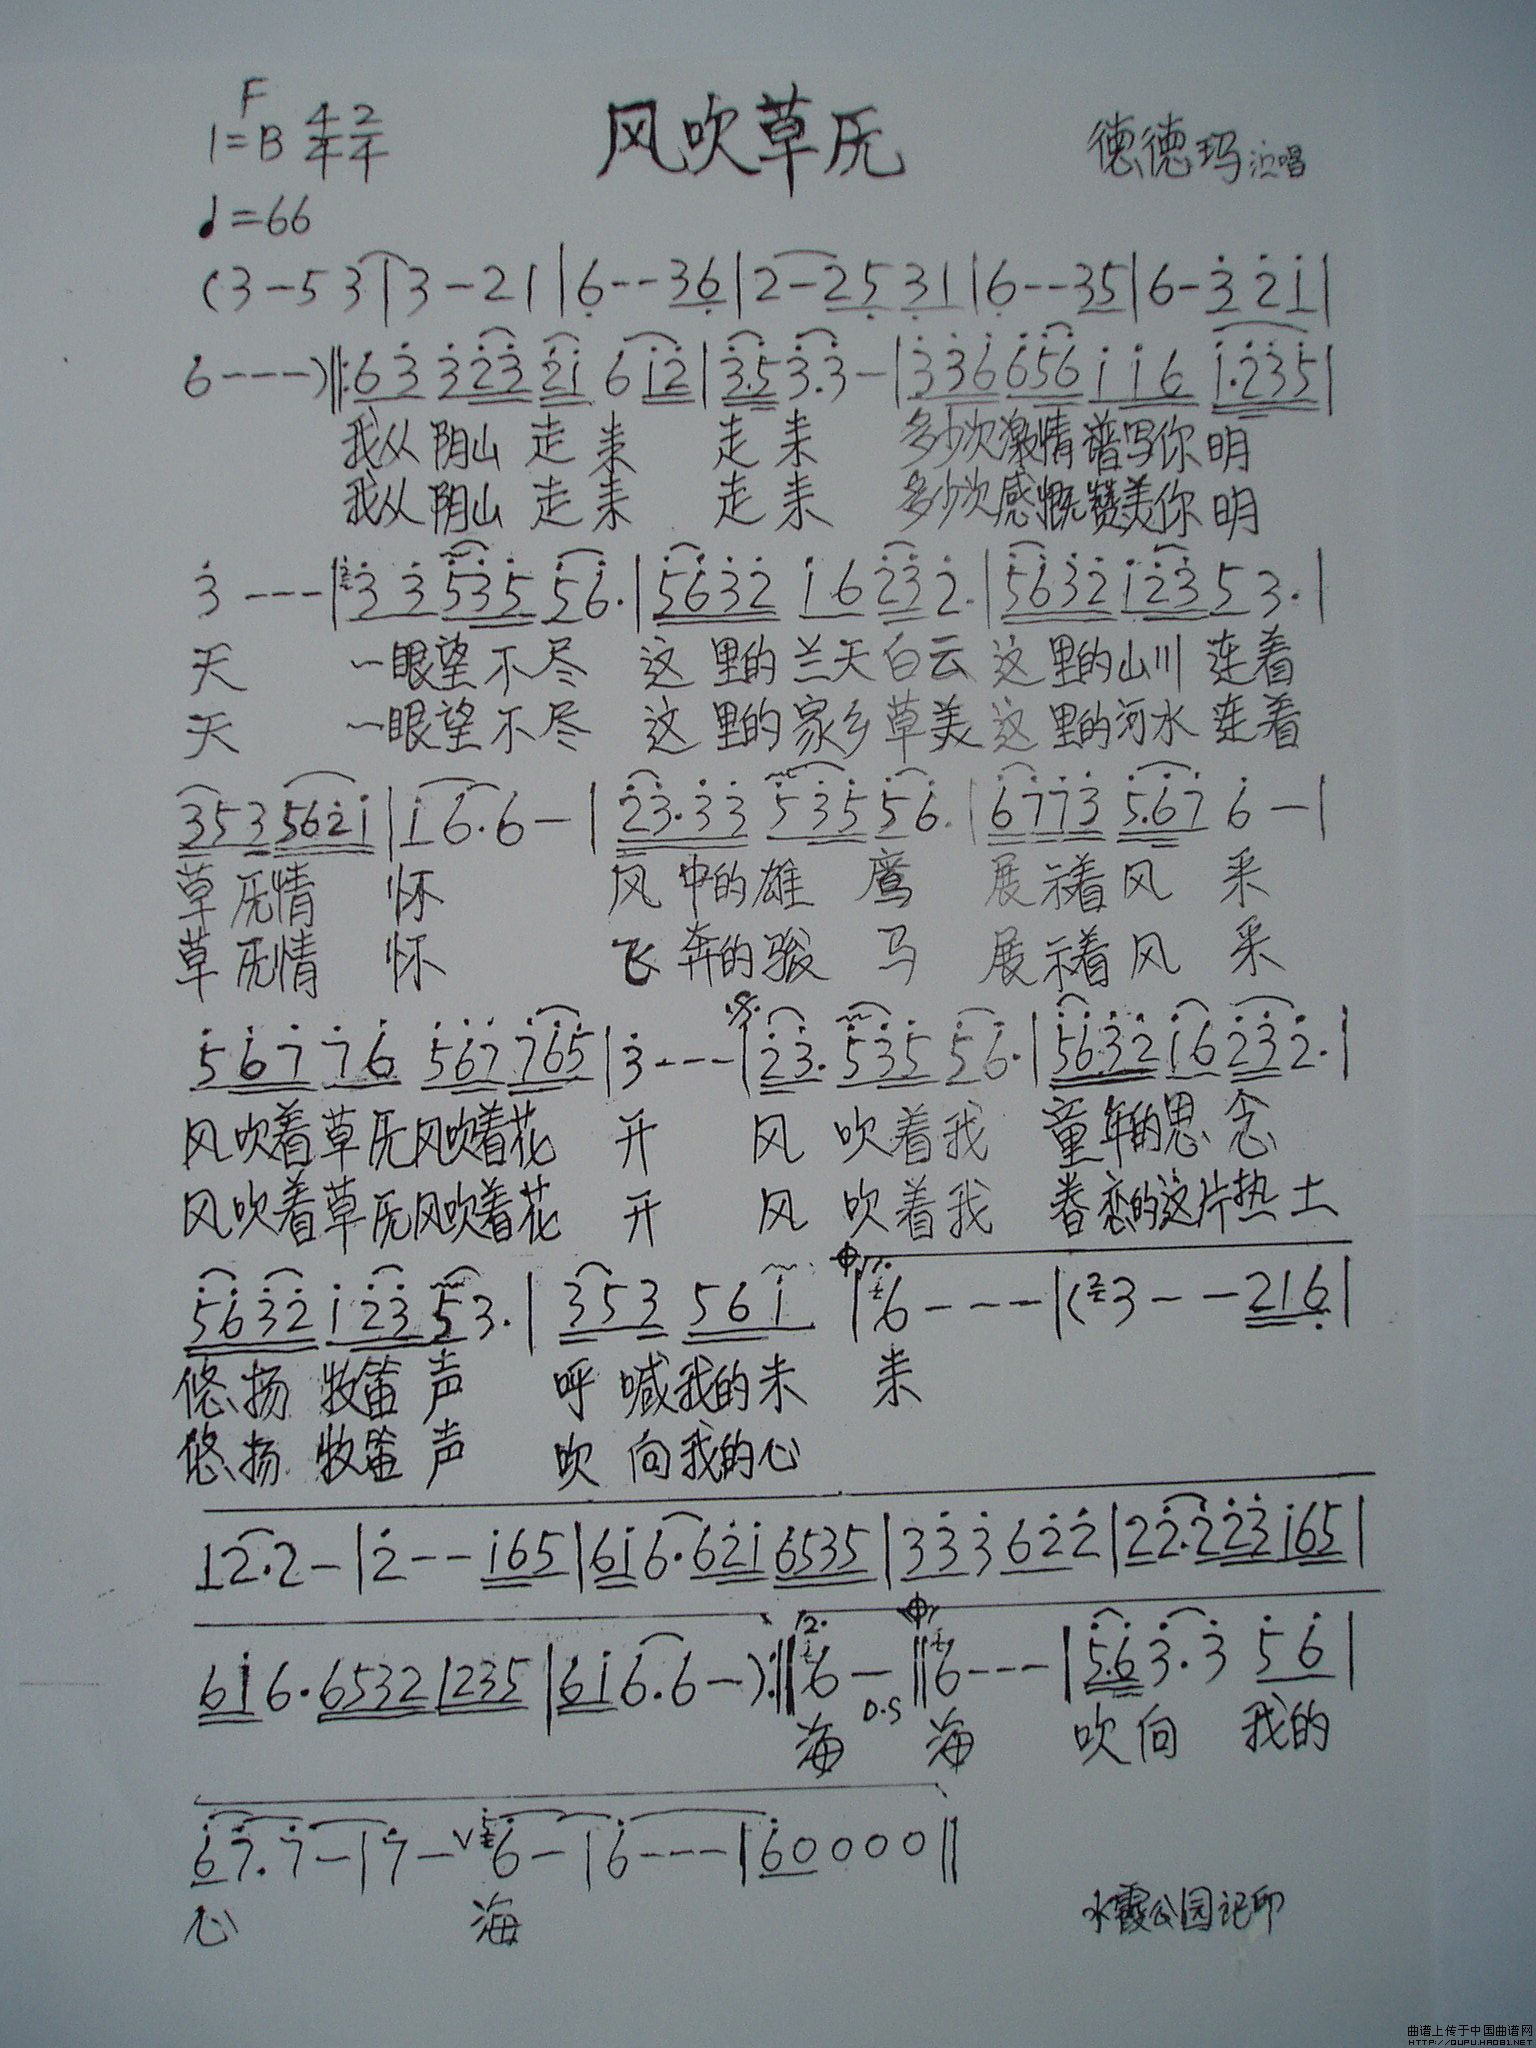 F
1=B 4/4 2/4
风吹草原
德德玛 演唱
♩=66
(3-5 3|3-21|6--36|2-25 31|6--35|6-3 2 1|
6---)‖:63 323 21 612|3.53.3-|336 656 116 1.235|
我从阴山走来 走来 多少次激情谱写你明
我从阴山走来 走来 多少次感慨赞美你明
3---|3 3 535 56.|5632 16 232.|5632 123 53.|
天 一眼望不尽 这里的兰天白云 这里的山川连着
天 一眼望不尽 这里的家乡草美 这里的河水连着
353 5621|1 6.6-|23.33 535 56.|6773 5.67 6-|
草原情怀 风中的雄鹰 展示着风采
草原情怀 飞奔的骏马 展示着风采
567 76 567 765|3---|23. 535 56.|5632 16 232.|
风吹着草原风吹着花开 风吹着我 童年的思念
风吹着草原风吹着花开 风吹着我 眷恋的这片热土
5632 123 53.|353 561|1. 6---|(3--216|
悠扬牧笛声 呼喊我的未来
悠扬牧笛声 吹向我的心
12.2-|2--165|616.621 6535|333 622|22.223 165|
616.6532 1235|616.6-):‖2. 6-‖6---|5.63.3 56|
D.S
海 海 吹向 我的
67.7-|7-V6-|6---|60000‖
心 海
水霞公园记印
曲谱上传于中国曲谱网
HTTP://QUPU.HAO81.NET